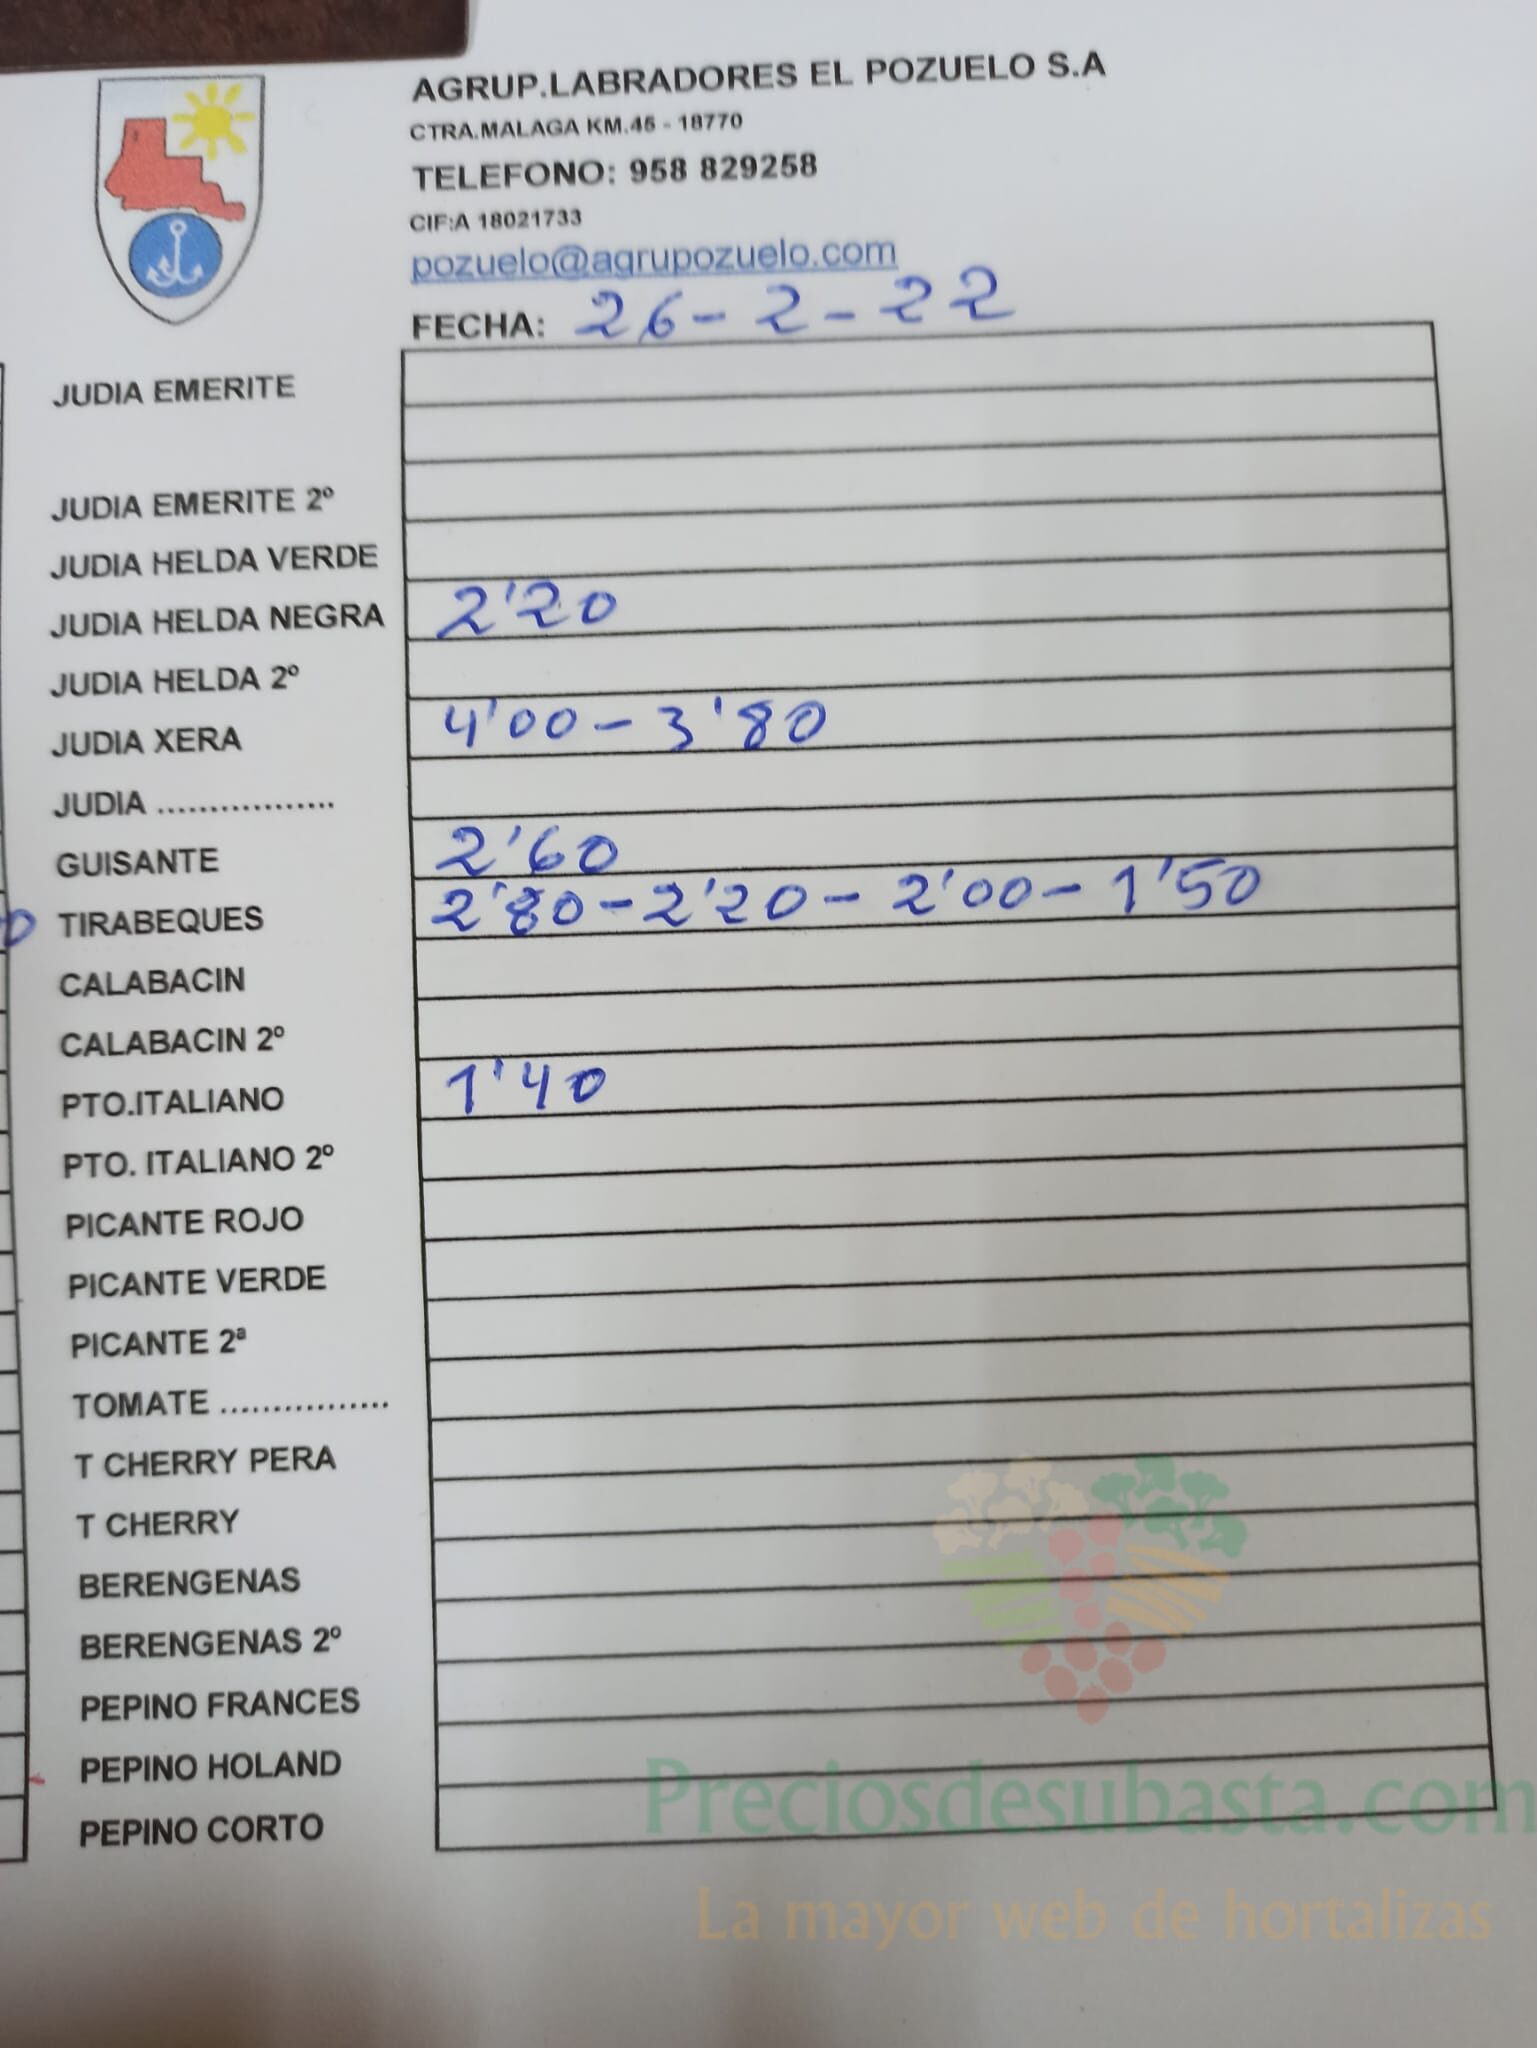 AGRUP.LABRADORES EL POZUELO S.A
CTRA.MALAGA KM.45 - 18770
TELEFONO: 958 829258
CIF:A 18021733
pozuelo@agrupozuelo.com
FECHA: 26-2-22
JUDIA EMERITE
JUDIA EMERITE 2º
JUDIA HELDA VERDE
JUDIA HELDA NEGRA 2'20
JUDIA HELDA 2º
JUDIA XERA 4'00-3'80
JUDIA .................
GUISANTE 2'60
TIRABEQUES 2'80-2'20-2'00-1'50
CALABACIN
CALABACIN 2º
PTO.ITALIANO 1'40
PTO. ITALIANO 2º
PICANTE ROJO
PICANTE VERDE
PICANTE 2ª
TOMATE ................
T CHERRY PERA
T CHERRY
BERENGENAS
BERENGENAS 2º
PEPINO FRANCES
PEPINO HOLAND
PEPINO CORTO
Preciosdesubasta.com
La mayor web de hortalizas